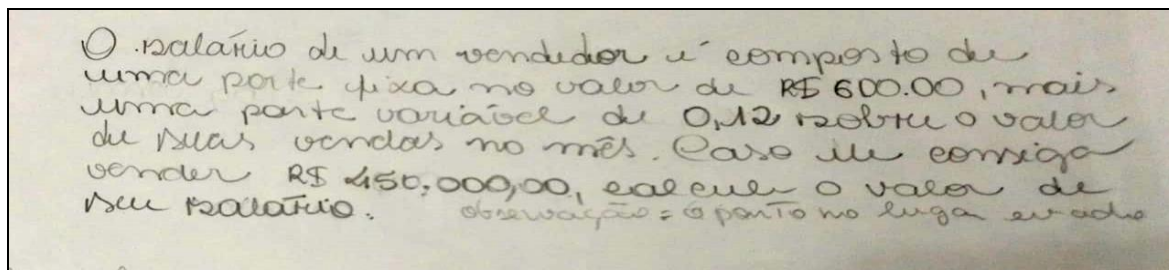 O salário de um vendedor é composto de
uma parte fixa no valor de R$ 600.00, mais
uma parte variável de 0,12 sobre o valor
de suas vendas no mês. Caso ele consiga
vender R$ 450.000,00, calcule o valor de
seu salário. observação = o ponto no luga erado